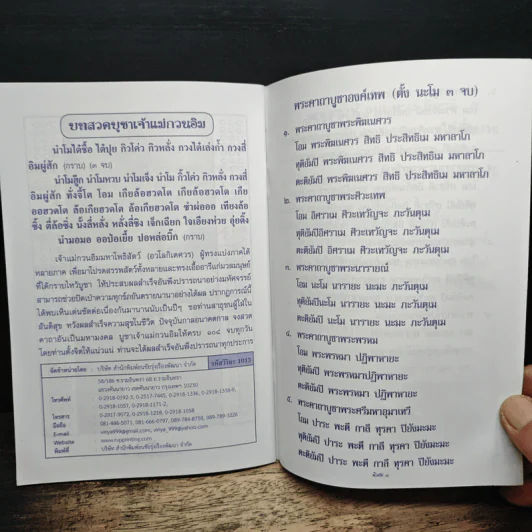 บทสวดบูชาเจ้าแม่กวนอิม
นำโมไต้ซื้อ ไต้ปุย กิวโคว่ กิวหลั่ง กวงไต้เล่งก้ำ กวงสี่
อิมผู่สัก (กราบ) (๓ จบ)
นำโมฮู้ก นำโมหวบ นำโมเจ็ง นำโม กิ้วโคว่ กิวหลั่ง กวงสี่
อิมผู่สัก ทั่งจี้โต โอม เกียล้อฮวดโต เกียล้อฮวดโต เกีย
ออฮวดโต ล้อเกียฮวดโต ล้อเกียฮวดโต ซำผ่อออ เทียงล้อ
ซิ้ง ตี่ล้อซิ่ง นั้งลี่หลั่ง หลั่งลี่ซิง เจ็กเฉียก ใจเอียงห่วย อุ่ยติ๊ง
นำมอมอ ออป้อเยี๊ย ปอหล่อบิ๊ก (กราบ)
เจ้าแม่กวนอิมมหาโพธิสัตว์ (อวโลกิเตศวร) ผู้ทรงแบ่งภาคได้
หลายภาค เพื่อมาโปรดสรรพสัตว์ทั้งหลายและทรงเอื้ออารีแก่มวลมนุษย์
ที่ได้กราบไหว้บูชา ให้ประสบผลสำเร็จอันพึงปรารถนาอย่างมหัศจรรย์
สามารถช่วยปัดเป่าความทุกข์ภัยอันตรายนานาอย่างได้ผล ปรากฏการณ์นี้
ได้พบเห็นเด่นชัดต่อเนื่องกันมานานนับเป็นปีๆ ขอท่านสาธุชนผู้ใฝ่ใน
สันติสุข หวังผลสำเร็จความสุขในชีวิต ปัจจุบันกาลอนาคตกาล จงสวด
คาถาอันเป็นมหามงคล บูชาเจ้าแม่กวนอิมให้ครบ ๑๐๘ จบทุกวัน
โดยท่านตั้งจิตให้แน่วแน่ ท่านจะได้ผลสำเร็จอันพึงปรารถนาทุกประการ
รหัสวิริยะ 1013
จัดจำหน่ายโดย : บริษัท สำนักพิมพ์คนชัยรุ่งเรืองพัฒนา จำกัด
58/186 ซ.รามอินทรา 68 ถ.รามอินทรา
แขวงคันนายาว เขตคันนายาว กรุงเทพฯ 10230
โทรศัพท์ : 0-2918-0192-3, 0-2517-7465, 0-2918-1336, 0-2918-1358-9,
0-2918-1037, 0-2918-1271-2,
โทรสาร : 0-2917-9072, 0-2918-1218, 0-2918-1038
มือถือ : 081-446-5071, 081-666-0797, 089-784-8759, 089-789-3326
E-mail. : viriya999@gmail.com, viriya_999@yahoo.com
Website : www.rungprinting.com
พิมพ์ที่ : บริษัท สำนักพิมพ์คนชัยรุ่งเรืองพัฒนา จำกัด
พระคาถาบูชาองค์เทพ (ตั้ง นะโม ๓ จบ)
๑. พระคาถาบูชาพระพิฆเนศวร
โอม พระพิฆเนศวร สิทธิ ประสิทธิเม มหาลาโภ
ทุติยัมปิ พระพิฆเนศวร สิทธิ ประสิทธิเม มหาลาโภ
ตะติยัมปิ พระพิฆเนศวร สิทธิ ประสิทธิเม มหาลาโภ
๒. พระคาถาบูชาพระศิวะเทพ
โอม อิศราเม ศิวะเทวัญจะ ภะวันตุเม
ทุติยัมปิอิศราเม ศิวะเทวัญจะ ภะวันตุเม
ตะติยัมปิ อิศราเม ศิวะเทวัญจะ ภะวันตุเม
๓. พระคาถาบูชาพระนารายณ์
โอม นะโม นารายะ นะมะ ภะวันตุเม
ทุติยัมปินะโม นารายะ นะมะ ภะวันตุเม
ตะติยัมปิ นะโม นารายะ นะมะ ภะวันตุเม
๔. พระคาถาบูชาพระพรหม
โอม พระพรหมา ปฏิพาหายะ
ทุติยัมปิ พระพรหมาปฏิพาหายะ
ตะติยัมปิ พระพรหมา ปฏิพาหายะ
๕. พระคาถาบูชาพระศรีมหาอุมาเทวี
โอม ปาระ พะตี กาลี ทุรคา ปิยังมะมะ
ทุติยัมปิ ปาระ พะตี กาลี ทุรคา ปิยังมะมะ
ตะติยัมปิ ปาระ พะตี กาลี ทุรคา ปิยังมะมะ